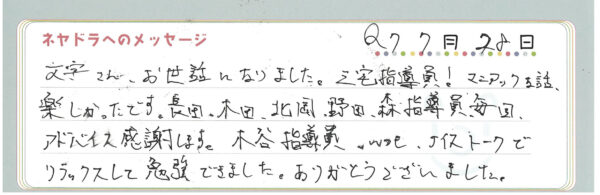 ネヤドラへのメッセージ
R7 7月 28日
文字さん、お世話になりました。三宅指導員！マニアックな話、
楽しかったです。長田、木田、北岡、野田、森指導員毎回、
アドバイス感謝します。木谷指導員、ナイストークで
リラックスして勉強できました。ありがとうございました。